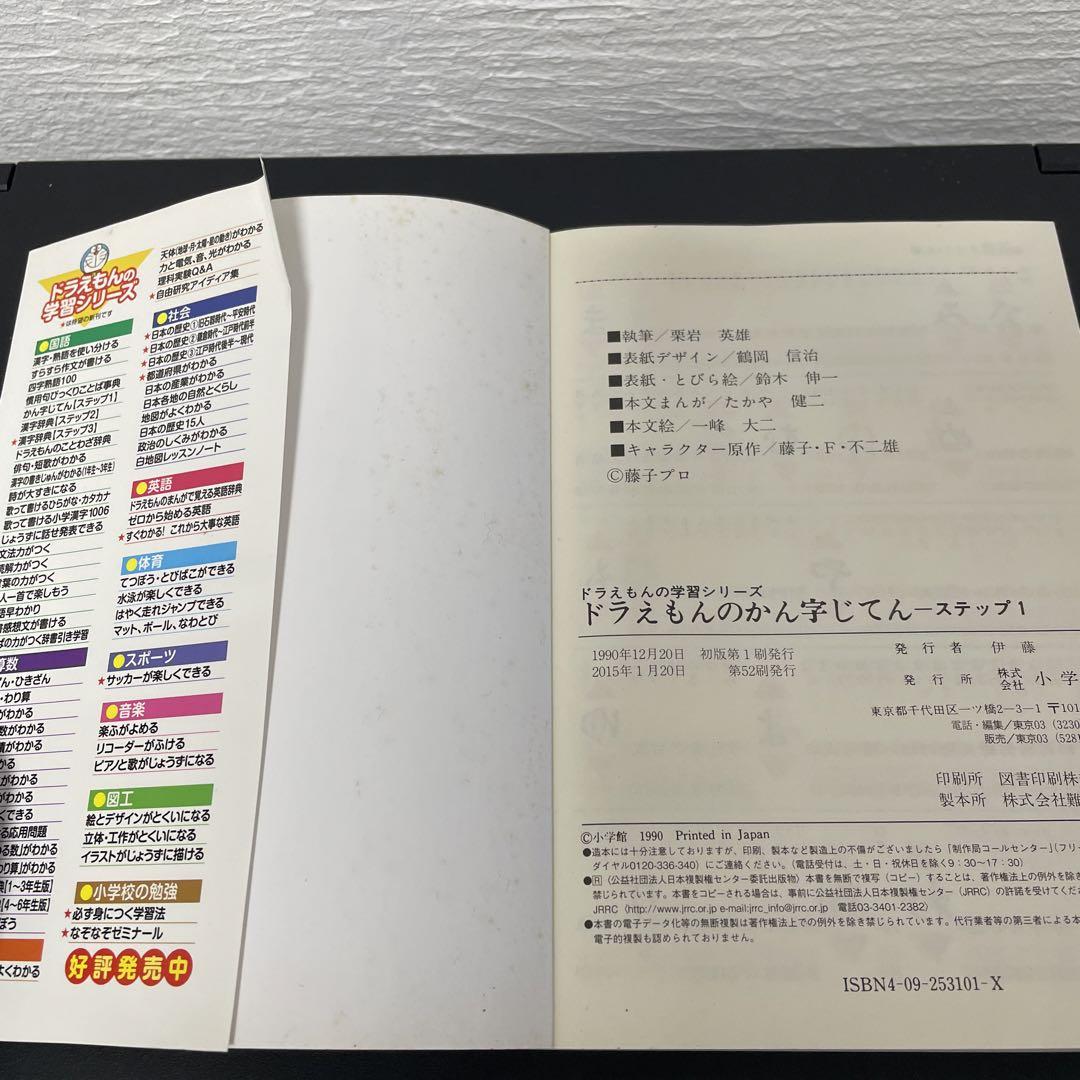 ドラえもんの
学習シリーズ
★は待望の新刊です
●国語
漢字・熟語を使い分ける
すらすら作文が書ける
四字熟語100
慣用句びっくりことば事典
かん字じてん[ステップ1]
漢字辞典[ステップ2]
★漢字辞典[ステップ3]
ドラえもんのことわざ辞典
俳句・短歌がわかる
漢字の書きじゅんがわかる(1年生〜3年生)
詩が大すきになる
歌って書けるひらがな・カタカナ
歌って書ける小学漢字1006
じょうずに話せ発表できる
文法力がつく
読解力がつく
言葉の力がつく
人一首で楽しもう
語早わかり
感想文が書ける
ばの力がつく辞書引き学習
算数
ざん・ひきざん
・わり算
がわかる
数がわかる
積がわかる
かる
がわかる
がわかる
くできる
る応用問題
る数」がわかる
わり算」がわかる
典[1〜3年生版]
[4〜6年生版]
ぼう
よくわかる
天体(地球・月・太陽・星の動き)がわかる
力と電気、音、光がわかる
理科実験Q&A
★自由研究アイディア集
●社会
★日本の歴史①旧石器時代〜平安時代
★日本の歴史②鎌倉時代〜江戸時代前半
★日本の歴史③江戸時代後半〜現代
★都道府県がわかる
日本の産業がわかる
日本各地の自然とくらし
地図がよくわかる
日本の歴史15人
政治のしくみがわかる
白地図レッスンノート
●英語
ドラえもんのまんがで覚える英語辞典
ゼロから始める英語
★すぐわかる! これから大事な英語
●体育
てつぼう・とびばこができる
水泳が楽しくできる
はやく走れジャンプできる
マット、ボール、なわとび
●スポーツ
★サッカーが楽しくできる
●音楽
楽ふがよめる
リコーダーがふける
ピアノと歌がじょうずになる
●図工
絵とデザインがとくいになる
立体・工作がとくいになる
イラストがじょうずに描ける
●小学校の勉強
★必ず身につく学習法
★なぞなぞゼミナール
好評発売中
■執筆／栗岩 英雄
■表紙デザイン／鶴岡 信治
■表紙・とびら絵／鈴木 伸一
■本文まんが／たかや 健二
■本文絵／一峰 大二
■キャラクター原作／藤子・F・不二雄
©藤子プロ
ドラえもんの学習シリーズ
ドラえもんのかん字じてん－ステップ1
1990年12月20日 初版第1刷発行
2015年1月20日 第52刷発行
発行者 伊藤
発行所 株式会社 小学
東京都千代田区一ツ橋2−3−1 〒101
電話・編集／東京03（3230
販売／東京03（5281
印刷所 図書印刷株
製本所 株式会社難
©小学館 1990 Printed in Japan
●造本には十分注意しておりますが、印刷、製本など製造上の不備がございましたら「制作局コールセンター」（フリー
ダイヤル0120-336-340）にご連絡ください。（電話受付は、土・日・祝休日を除く9：30〜17：30）
●Ⓡ（公益社団法人日本複製権センター委託出版物）本書を無断で複写（コピー）することは、著作権法上の例外を除き
禁じられています。本書をコピーされる場合は、事前に公益社団法人日本複製権センター（JRRC）の許諾を受けてくださ
JRRC（http://www.jrrc.or.jp e-mail:jrrc_info@jrrc.or.jp 電話03-3401-2382）
●本書の電子データ化等の無断複製は著作権法上での例外を除き禁じられています。代行業者等の第三者による本
電子的複製も認められておりません。
ISBN4-09-253101-X